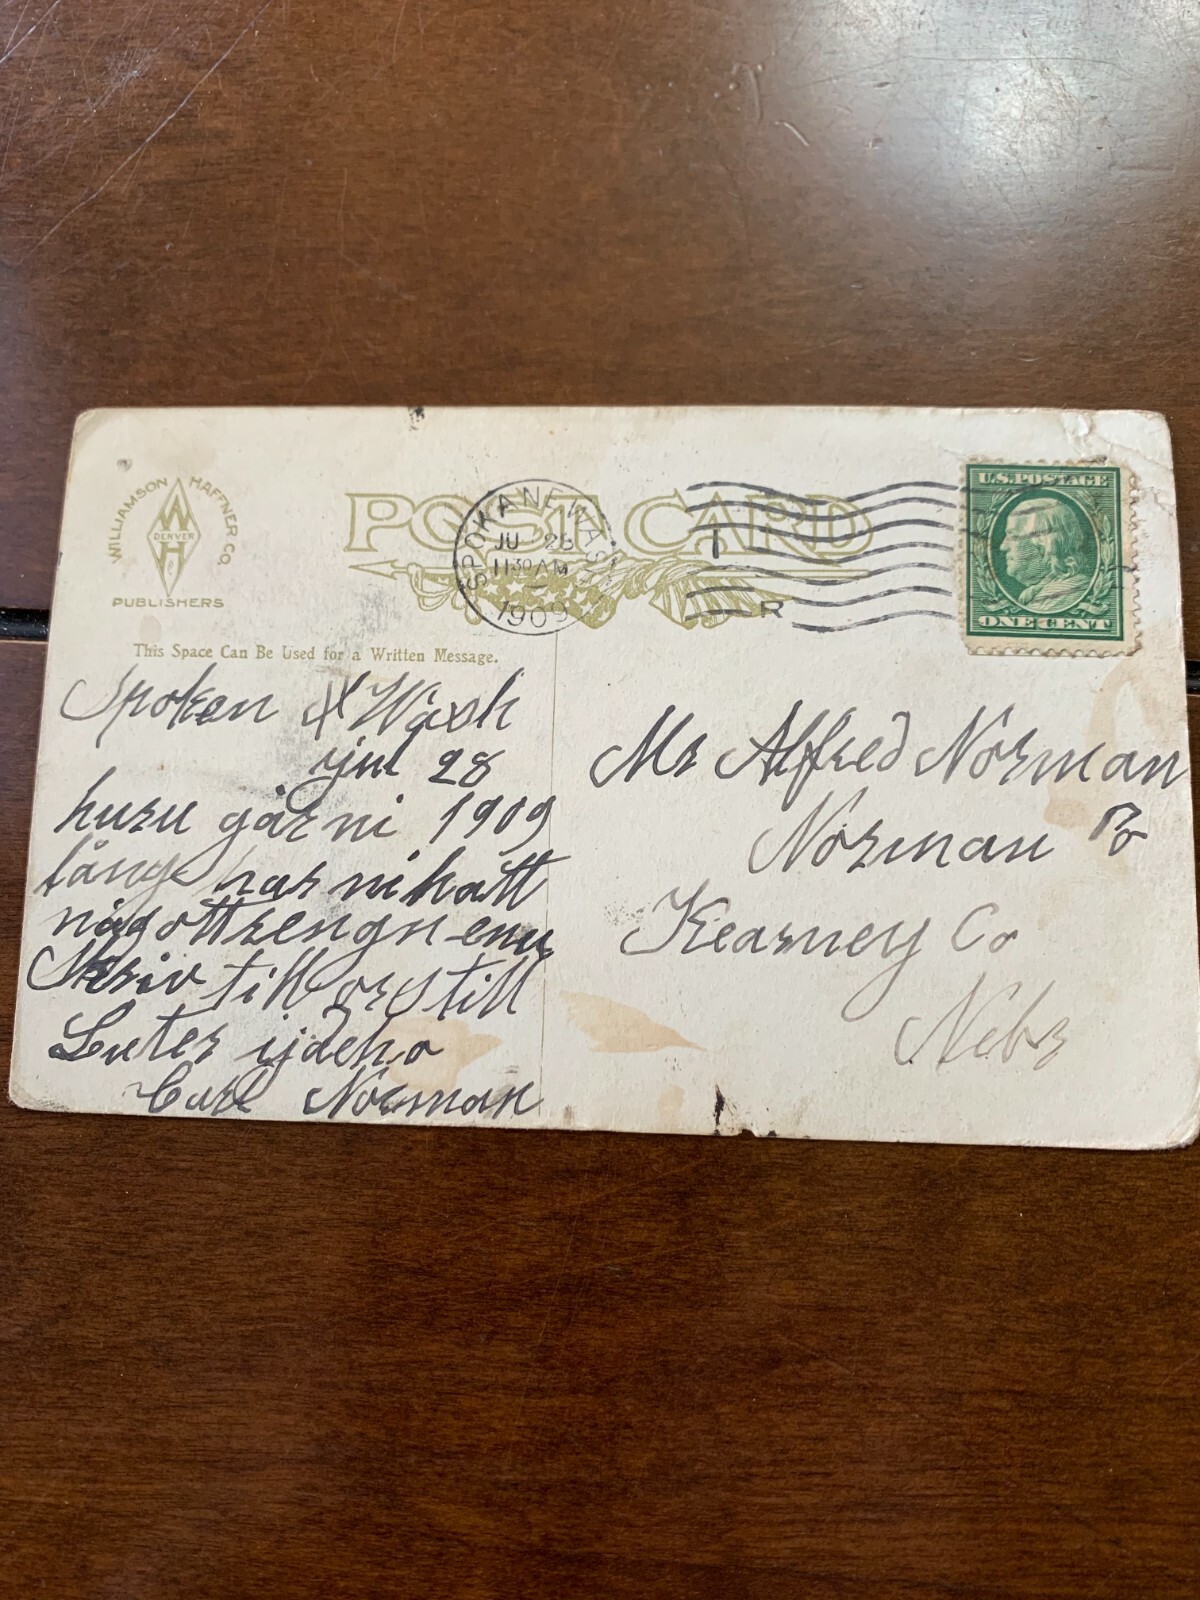 WILLIAMSON HAFFNER CO.
W
DENVER
H
PUBLISHERS
POST CARD
SPOKANE WASH
JU 28
11 30 AM
1909
R
U.S. POSTAGE
ONE CENT
This Space Can Be Used for a Written Message.
Spoken Wash
jul 28
huru går ni 1909
länge har ni hatt
någott rengn enu
Skriv till
Luter ijdeho
Carl Norman
Mr Alfred Norman
Norman Po
Kearney Co
Nebr